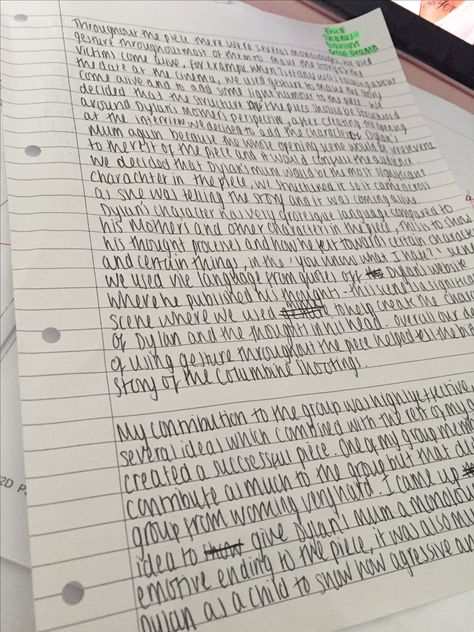 Throughout the piece there were several monologues, we used
gesture throughout most of them to make the story of the
victim come alive, for example when Tiffany was talking about
the date at the cinema, we used gesture to make this story
come alive and to add some light humour to the piece. We
decided that the structure of the piece should be structured
around Dylan's mothers perspective, after creating the opening
at the interview we decided to add the character of Dylan's
mum again because the whole opening scene would be irrelevent
to the rest of the piece and it would confuse the audience
We decided that Dylan's mum would be the most significant
charachter in the piece, we structured it so it came across
as she was telling the story and it was coming alive.
Dylan's character has very grotesque language compared to
his mothers and other character in the piece, this is to show
his thought processes and how he felt towards certain
and certain things, in the 'you know what I hate?'
we used the language from quotes off Dylan's website
where he published his thoughts. This
scene where we used to help create the
of Dylan and the thoughts in his head. overall our
of using gesture throughout the piece helped tell the
story of the Columbine shooting.
My contribution to the group was highly effective
several ideas which combined with the rest of my
created a successful piece. One of my group
contribute as much to the group but that
group from working very hard. I came up
idea to give Dylan's mum a
emotive ending to the piece, it was also
Dylan as a child to show how agressive
2D